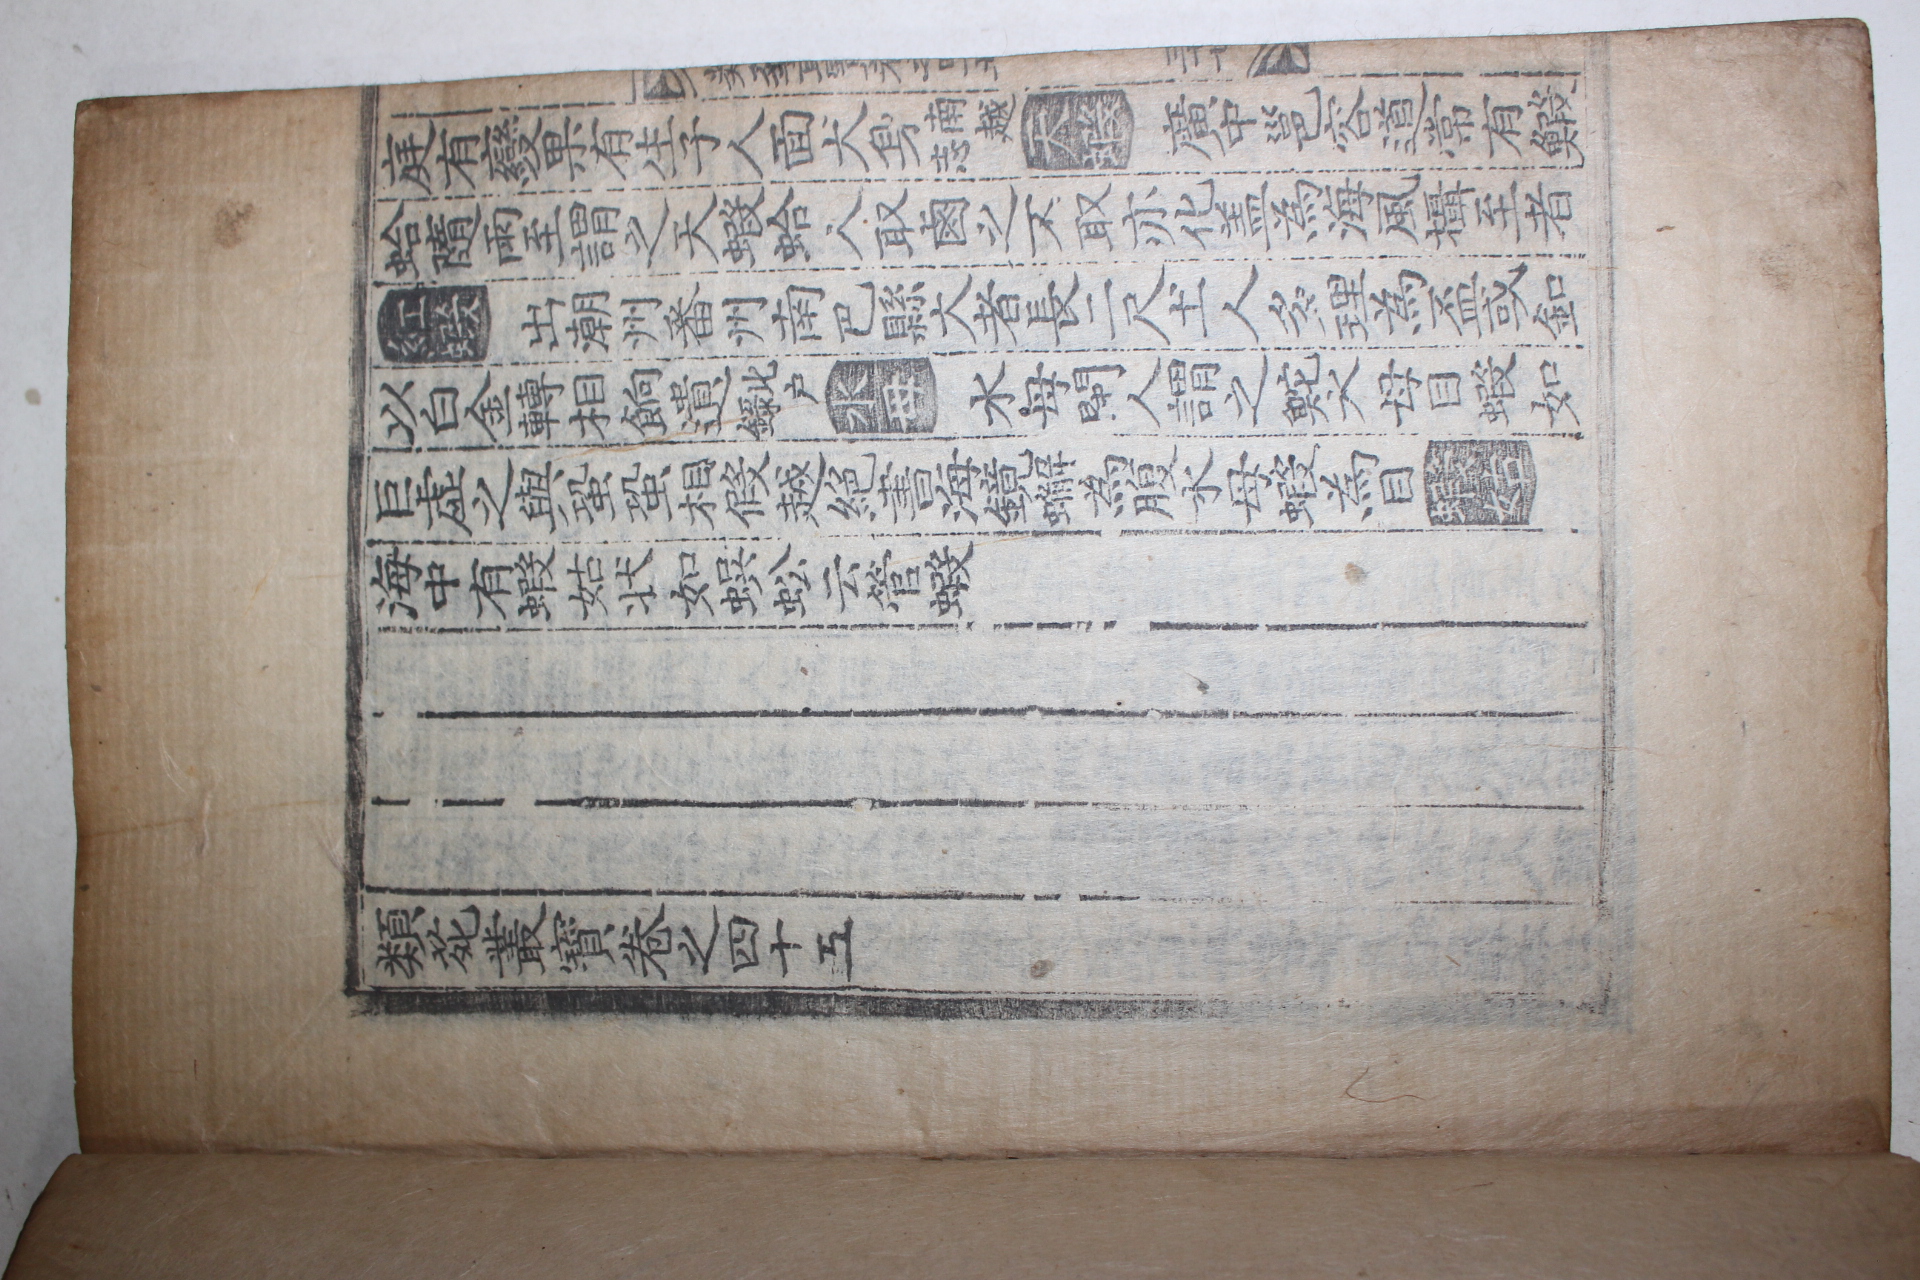 庭有變果有生子人面犬身南越志天蝦廣中邕容道常有鰕
蛤隨雨至謂之天蝦蛤人取鹵之不取亦化盖為海風攝至者
紅蝦出潮州番州南巴縣大者長二尺土人多理為盃或釦
以白金轉相餉遺北户錄水母水母閩人謂之鮀水母目蝦如
巨虛之與蛩蛩相假越絕書海鏡蠏為腹水母蝦為目蝦姑
海中有蝦姑狀如蜈蚣云管蝦
類苑叢寶卷之四十五